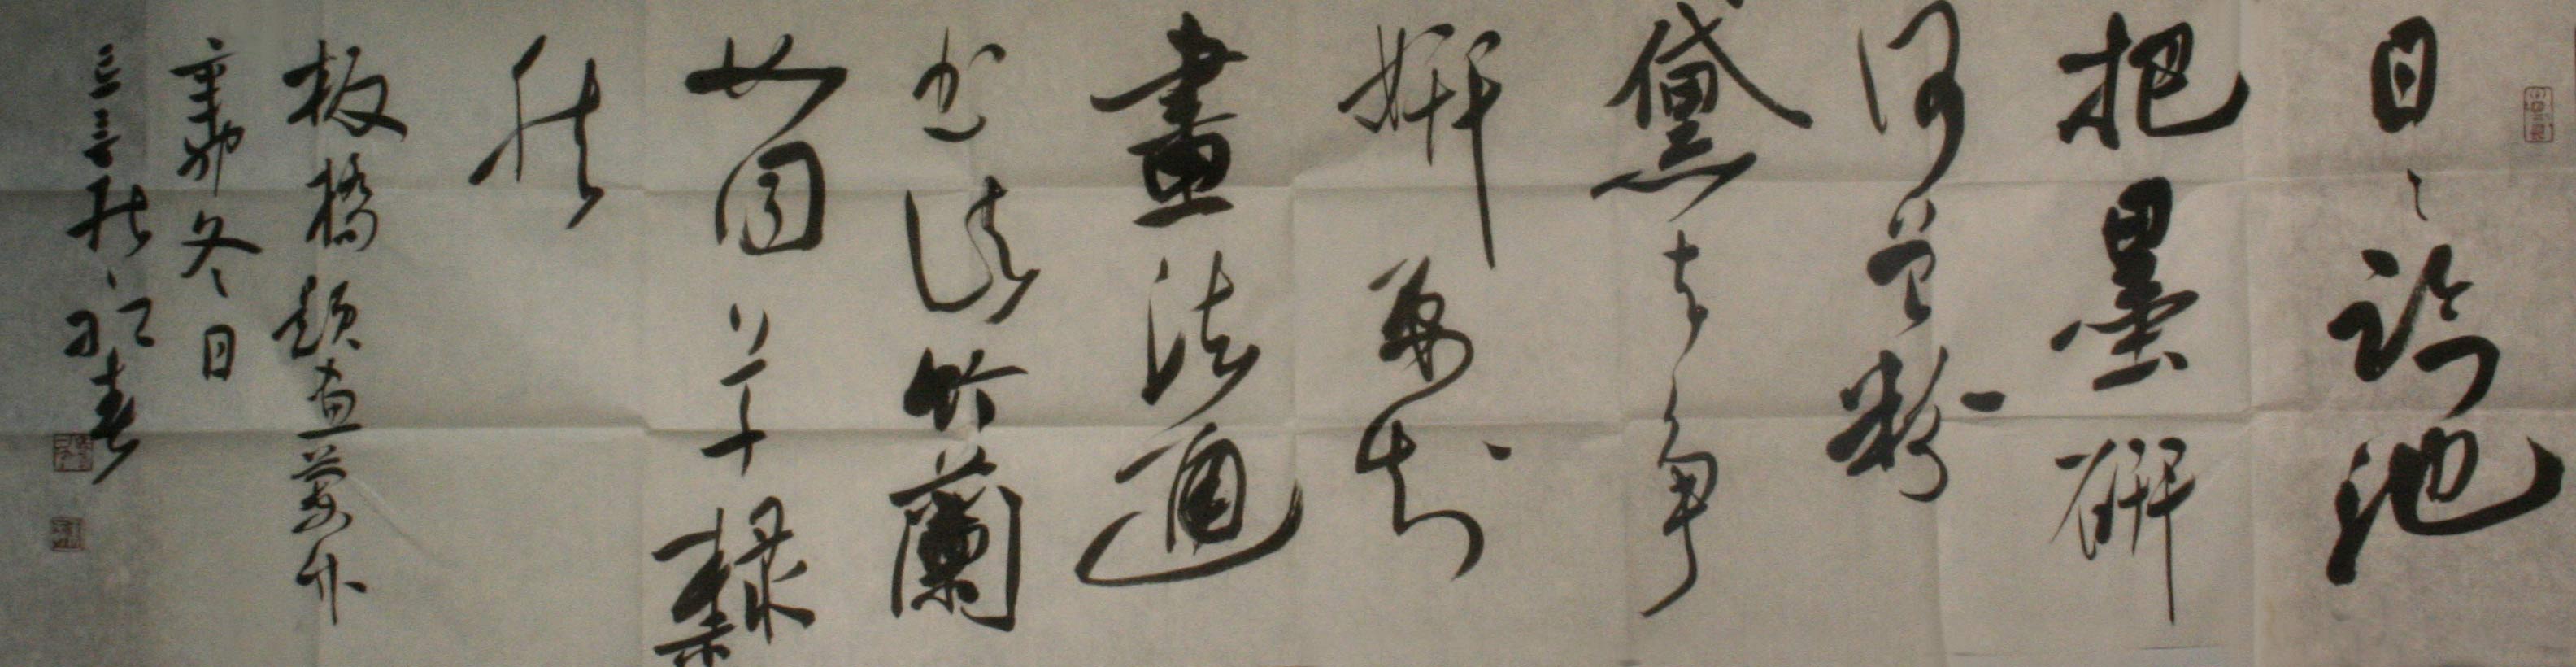 日日臨池
把墨研
何曾粉
黛去爭
妍要知
畫法通
书法竹蘭
如同草隸
然
板橋題画蘭竹
辛卯冬日